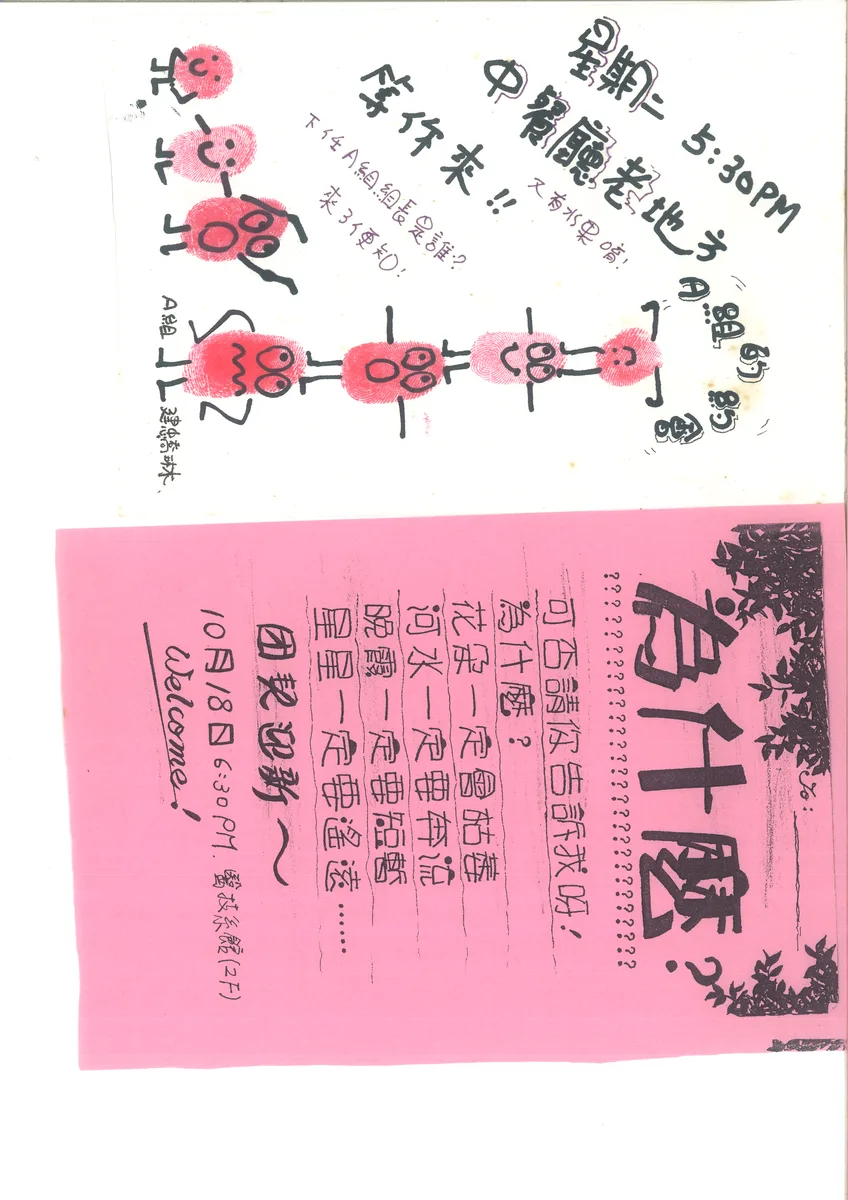 A組的約會
星期二 5:30PM
中餐廳老地方
又有水果唷!
等你來!!
下任A組組長是誰?
來了便知!
A組
To:
為什麼?
????????????????????????????????
可否請你告訴我呀!
為什麼?
花朵一定會枯萎
河水一定要奔流
晚霞一定要短暫
星星一定要遙遠……
团契迎新~
10月18日 6:30PM. 醫技系館(2F)
Welcome!